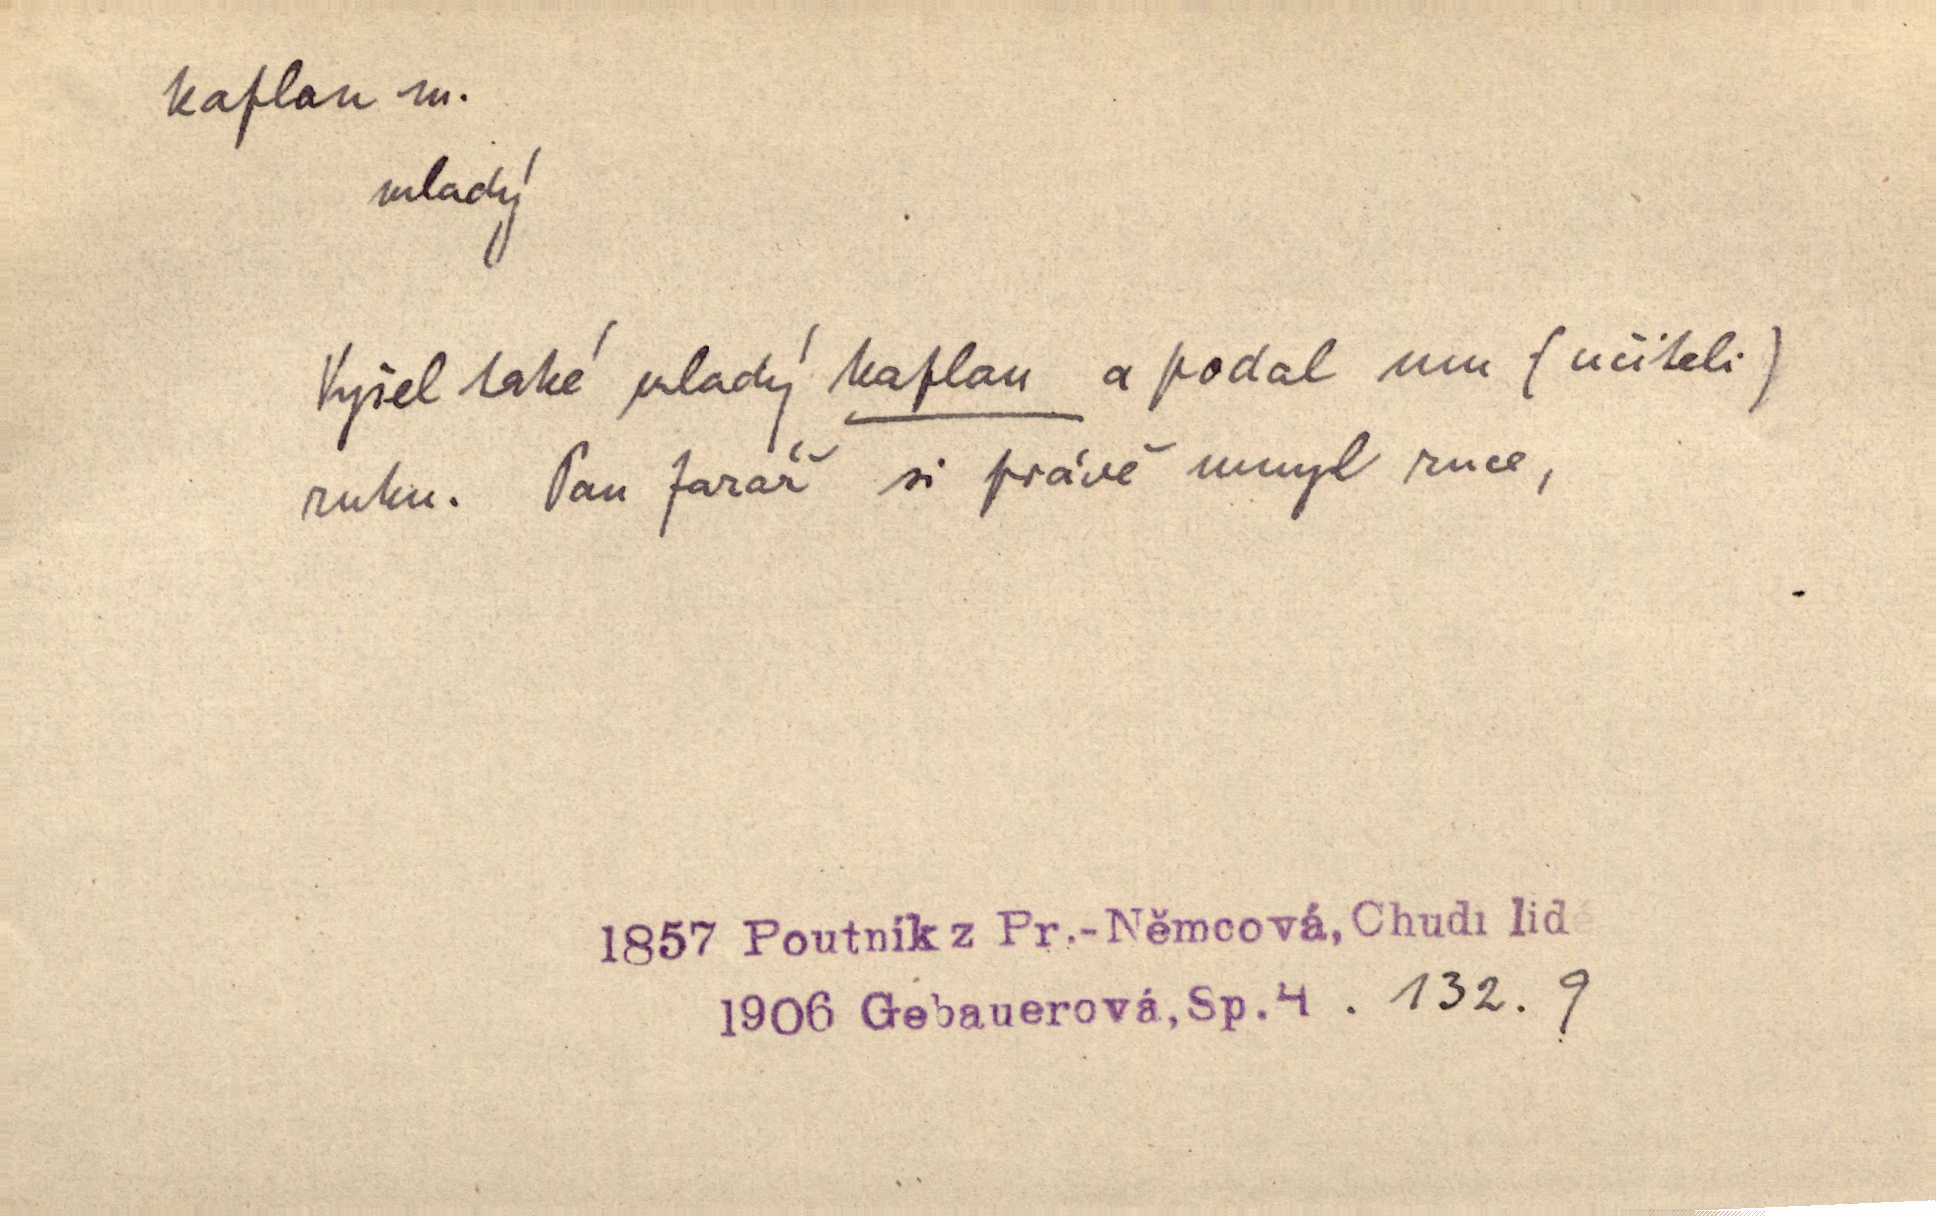 kaplan m.
mladý
Vyšel také mladý kaplan a podal mu (učiteli)
ruku. Pan farář si právě umyl ruce,
1857 Poutník z Pr.-Němcová, Chudí lidé
1906 Gebauerová, Sp. 4 . 132. 9